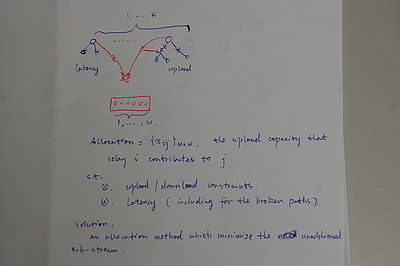 1, ..., K.
latency
upload
1, ..., M.
Allocation: {x_ij}_MxN, the upload capacity that
relay i contributes to j
s.t.
①. upload / download constraints
②. Latency ( including for the broken paths)
Solution:
an allocation method which minimize the unaddressed
sub-stream.